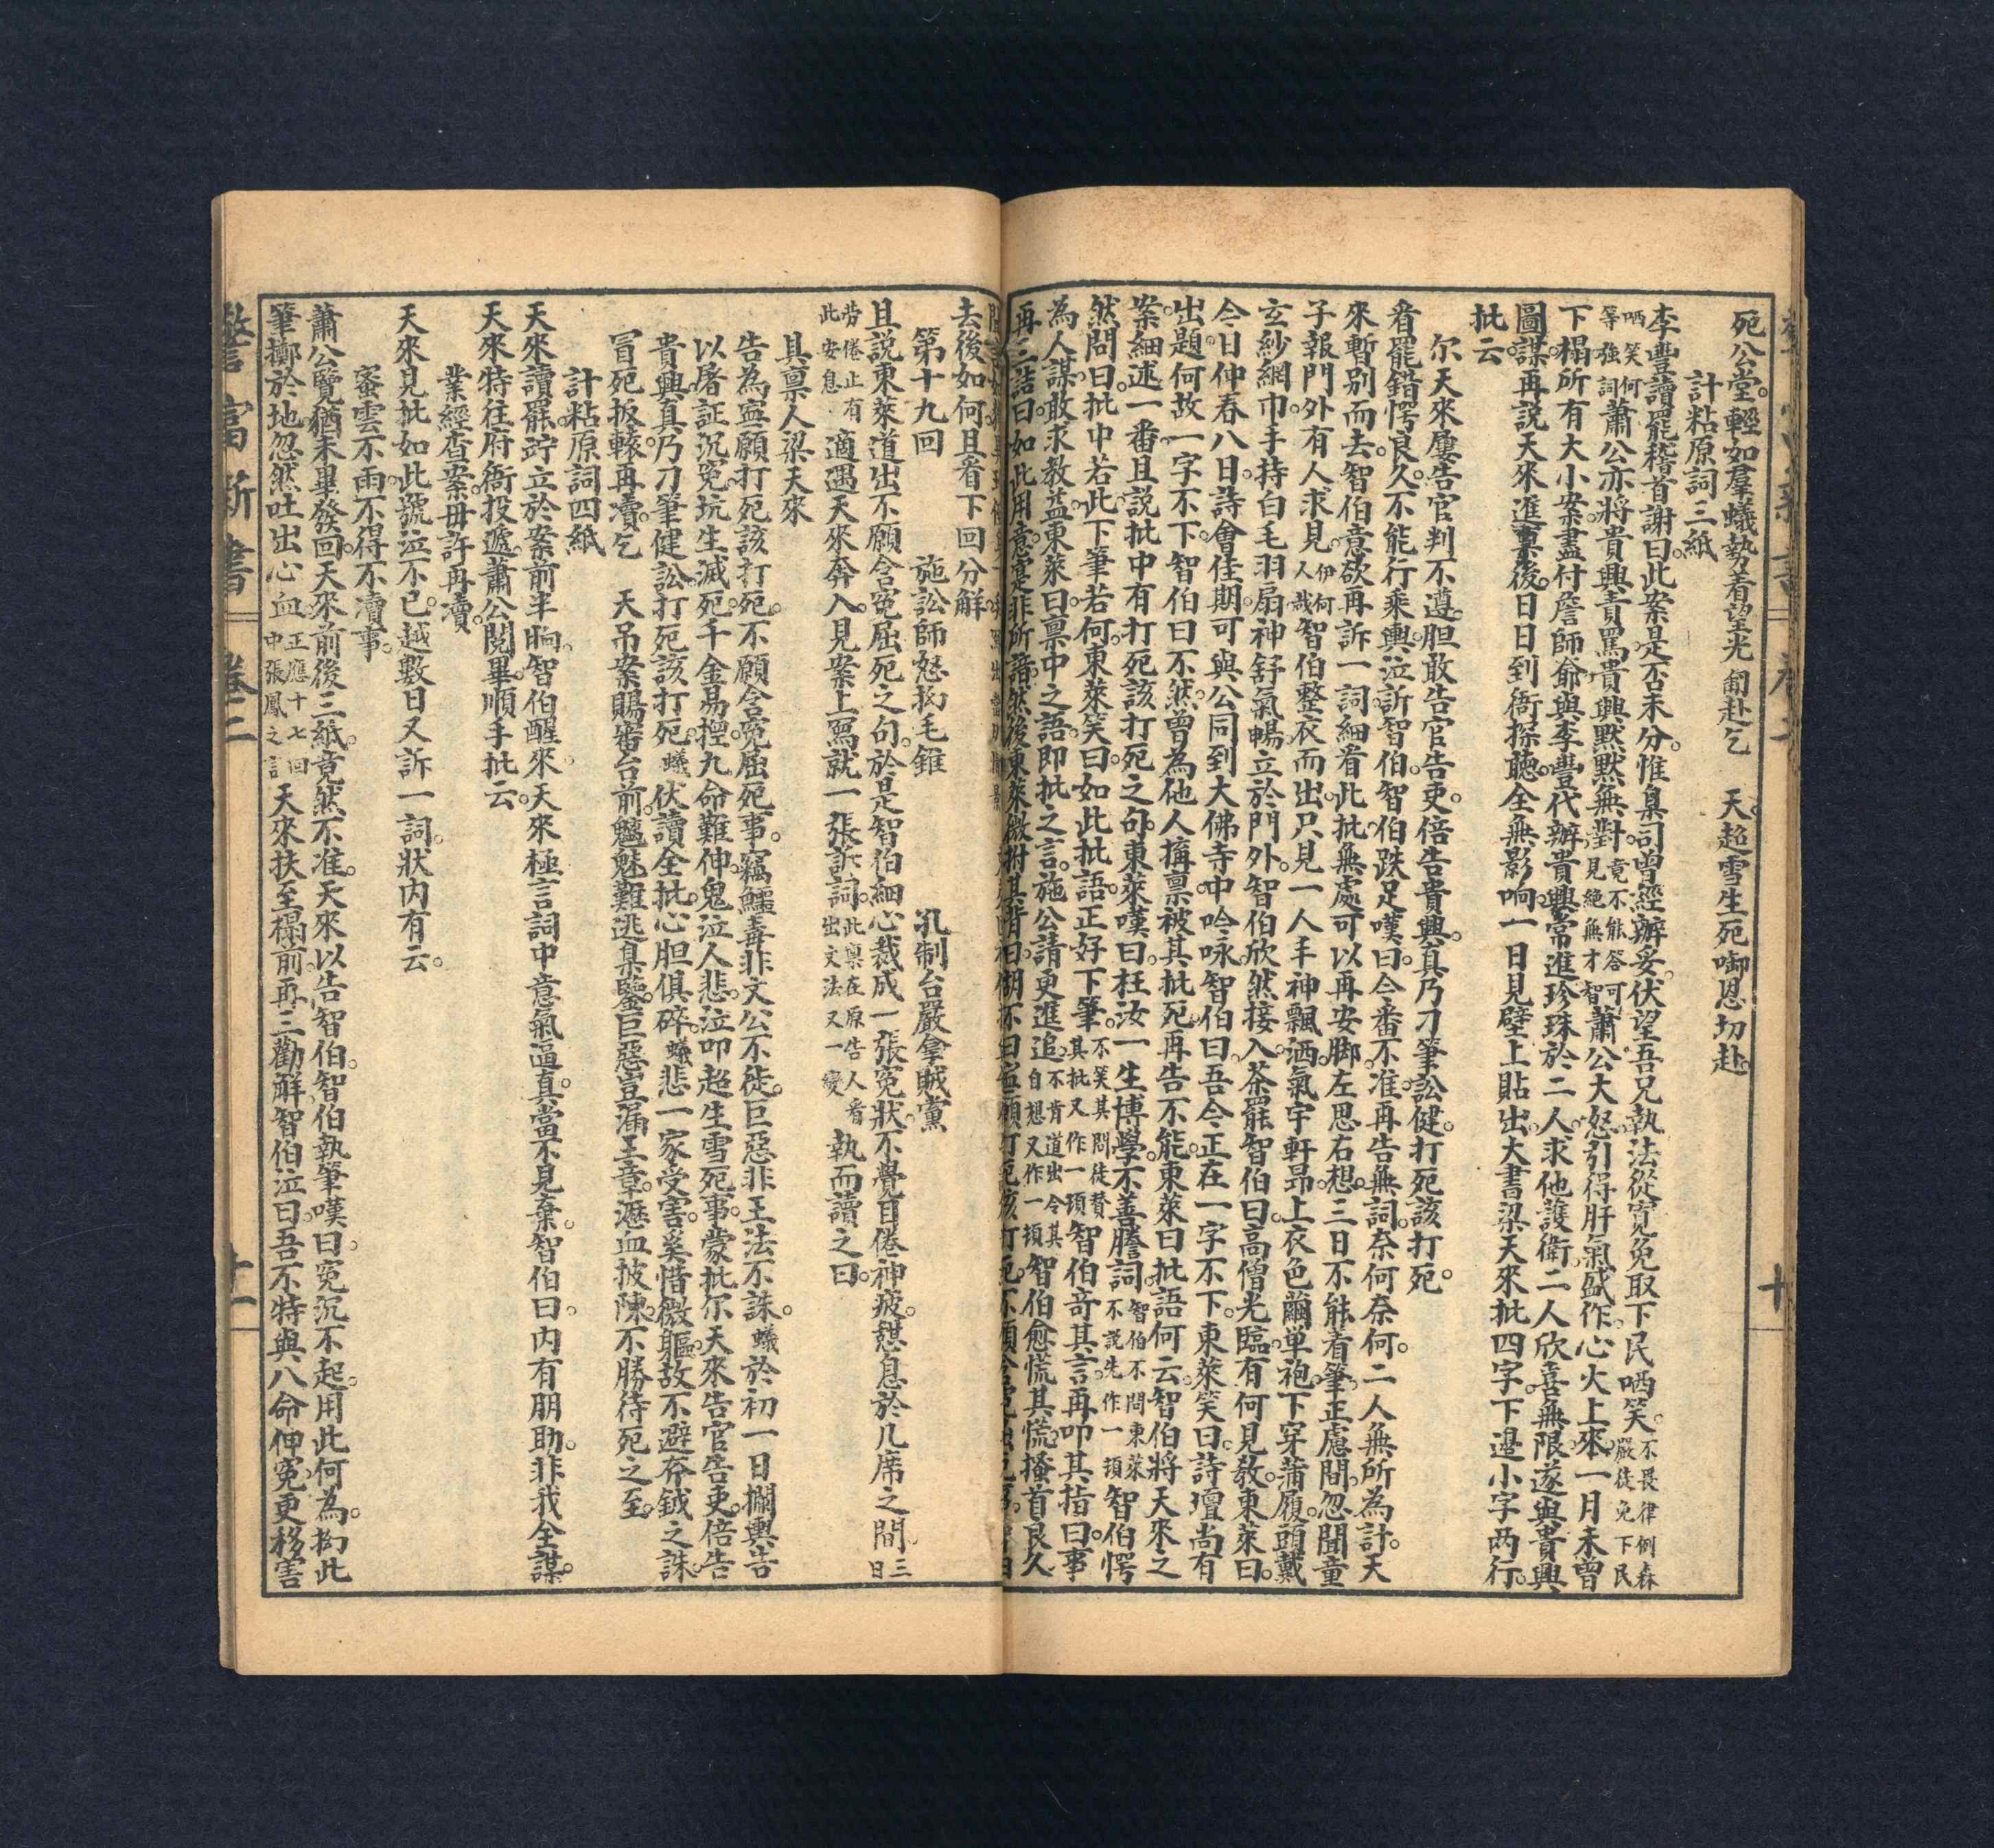 死公堂。輕如羣蟻勢着望光匍赴乞　天。超雪生死啣恩切赴
計粘原詞三紙
李豐讀罷稽首謝曰。此案是否未分。惟臬司曾經辦妥。伏望吾兄執法從寬免取下民哂笑。不畏律例森嚴徒免下民
哂笑何等強詞蕭公亦將貴興責罵貴興默默無對。竟不能答可見絕無才智蕭公大怒引得肝氣盛作。心火上來。一月未曾
下榻所有大小案盡付詹師爺與李豐代辦。貴興常進珍珠於二人求他護衛。二人欣喜無限遂與貴興
圖謀。再説天來進稟後。日日到衙探聽。全無影响。一日見壁上貼出大書梁天來批四字下邉小字两行。
批云
尔天來屢告官判不遵。胆敢告官告吏。倍告貴興。真乃刀筆訟健。打死該打死。
看罷錯愕良久。不能行乘輿泣訴智伯。智伯跌足嘆曰。今番不准再告無詞。奈何奈何。二人無所為計。天
來暫别而去。智伯意欲再訴一詞細看此批無處可以再安脚左思右想。三日不能着筆。正慮間。忽聞童
子報門外有人求見。伊何人哉智伯整衣而出只見一人手神飄洒。氣宇軒昂。上衣色繭单袍。下穿蒲履。頭戴
玄紗網巾。手持白毛羽扇。神舒氣暢。立於門外。智伯欣然接入。茶罷智伯曰。高僧光臨。有何見教。東萊曰。
今日仲春八日。詩會佳期。可與公同到大佛寺中吟咏。智伯曰。吾今正在一字不下。東萊笑曰。詩壇尚有
出題。何故一字不下。智伯曰不然。曾為他人搆禀。被其批死。再告不能。東萊曰批語何云。智伯將天來之
案。細述一番。且説批中有打死該打死之句。東萊嘆曰。枉汝一生博學。不善謄詞。智伯不問東萊不説先作一頓智伯愕
然問曰。批中若此下筆若何。東萊笑曰。如此批語。正好下筆。不笑其問徒賛其批又作一頓智伯奇其言。再叩其指曰。事
為人謀。敢求教益。東萊曰。禀中之語。即批之言。施公請更進追。不肯道出令其自想又作一頓智伯愈慌。其慌。搔首良久
再三詰曰。如此用意。
去後如何。且看下回分解
第十九回　施訟師怒拗毛錐　孔制台嚴拿賊黨
且説東萊道出不願含寃屈死之句。於是智伯細心裁成一張寃狀。不覺目倦神疲。憇息於几席之間。三日
勞倦止有此安息適遇天來奔入。見案上寫就一張訴詞。此禀在原告人看出文法又一變執而讀之曰。
具禀人梁天來
告為寕願打死該打死。不願含寃屈死事。竊鱷毒非文公不徙。巨惡非王法不誅。蟻於初一日攔輿告
以屠証沉寃坑生滅死。千金易捏。九命難伸。鬼泣人悲。泣叩超生雪死事。蒙批尔天來告官告吏。倍告
貴興。真乃刀筆健訟。打死該打死。蟻伏讀全批。心胆俱碎。蟻悲一家受害。奚惜微軀。故不避斧鉞之誅。
冒死扳轅。再凟。乞　天吊案賜審台前。魑魅難逃臬鑒。巨惡豈漏王章。瀝血披陳。不勝待死之至。
計粘原詞四紙
天來讀罷。跕立於案前半晌。智伯醒來。天來極言詞中意氣逼真。當不見棄。智伯曰。内有朋助。非我全謀。
天來特往府衙投遞。蕭公閱畢順手批云。
業經查案。毋許再瀆。
天來見批如此。號泣不已。越數日又訴一詞。狀内有云。
蜜雲不雨。不得不凟事。
蕭公覽猶未畢。發回天來。前後三紙。竟然不准。天來以告智伯。智伯執筆嘆曰。寃沉不起。用此何為。拗此
筆擲於地。忽然吐出心血。正應十七回中張鳳之言天來扶至榻前。再三勸解。智伯泣曰。吾不特與八命伸寃。更移害
警富新書　卷二　十一